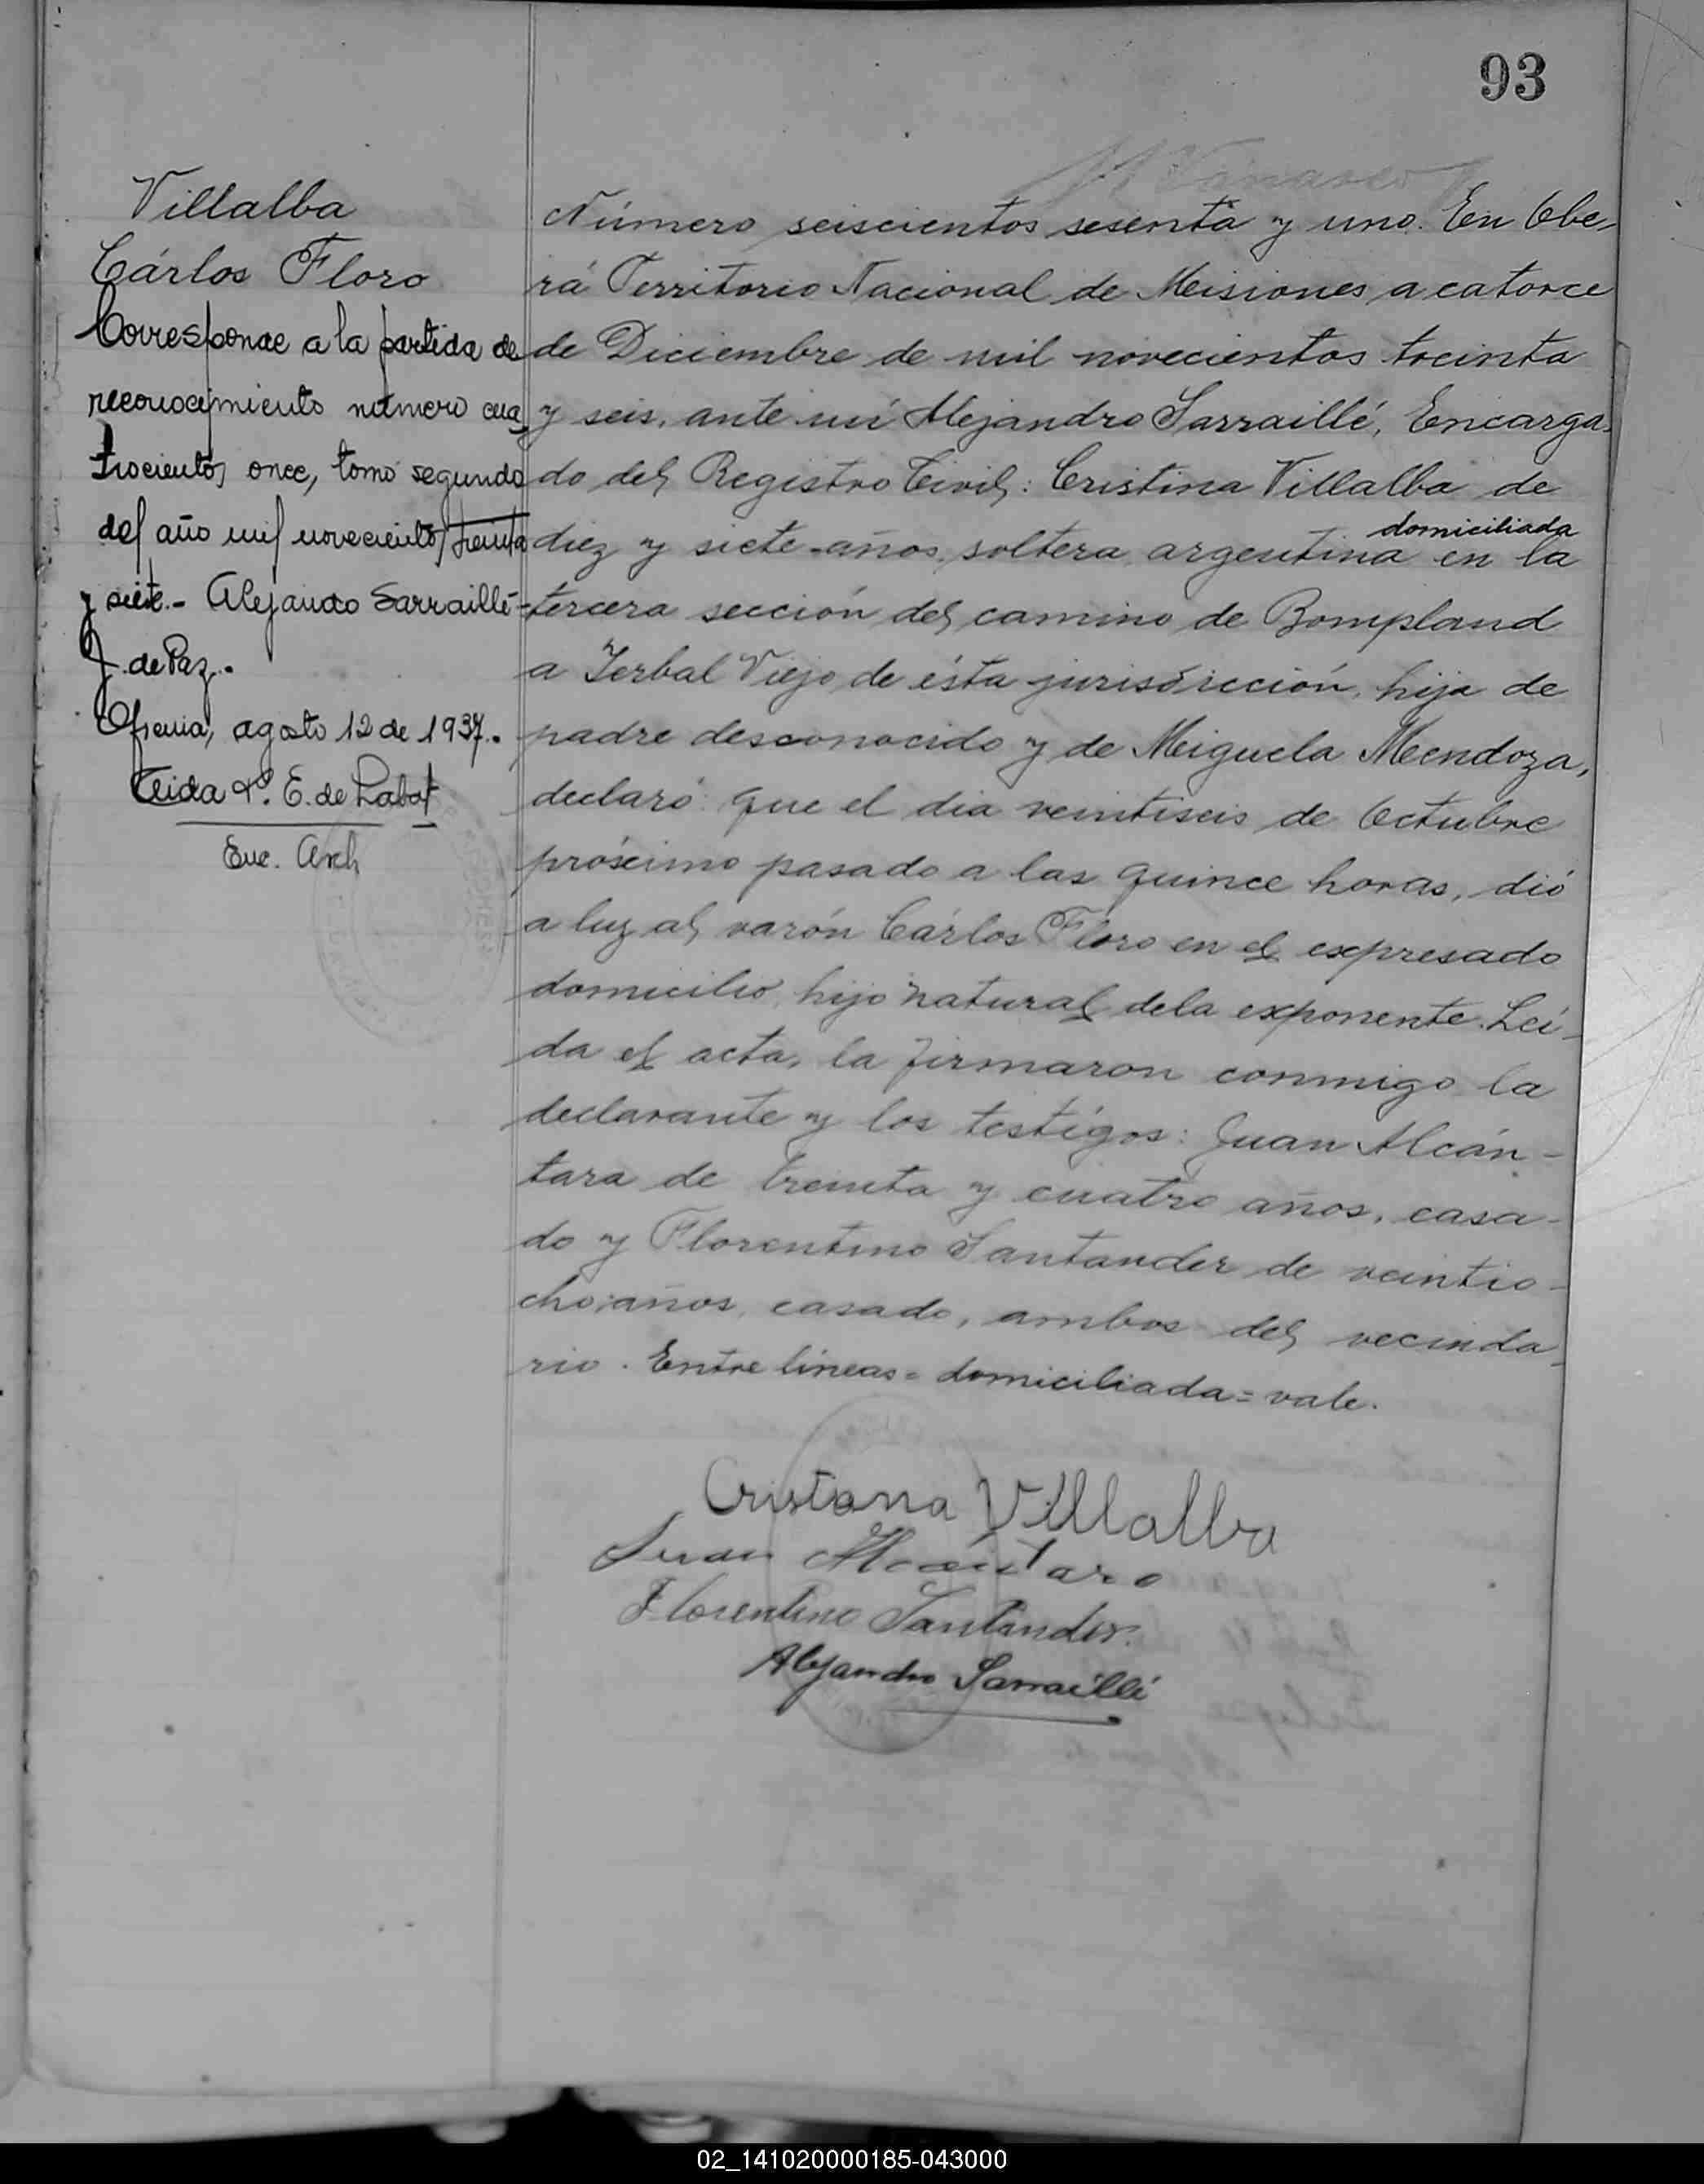 93
Villalba
Cárlos Floro
Corresponde a la partida de
reconocimiento número cua
trocientos once, tomo segundo
del año mil novecientos treinta
y siete.- Alejandro Sarraillé-
J. de Paz.-
agosto 12 de 1937.-
E. de Labat
Enc. Arch
Número seiscientos sesenta y uno. En Obe-
rá Territorio Nacional de Misiones, a catorce
de Diciembre de mil novecientos treinta
y seis, ante mí Alejandro Sarraillé, Encarga-
do del Registro Civil: Cristina Villalba de
domiciliada
diez y siete años, soltera, argentina en la
tercera sección del camino de Bompland
a Yerbal Viejo de ésta jurisdicción, hija de
padre desconocido y de Miguela Mendoza,
declaró: Que el día veintiseis de Octubre
próximo pasado a las quince horas, dió
a luz al varón Cárlos Floro en el expresado
domicilio, hijo natural de la exponente. Leí-
da el acta, la firmaron conmigo la
declarante y los testigos: Juan Alcán-
tara de treinta y cuatro años, casa-
do y Florentino Santander de veintio-
cho años, casado, ambos del vecinda-
rio. Entre líneas= domiciliada= vale.
Cristana Villalba
Juan Alcantara
Florentino Santander.
Alejandro Sarraillé
02_141020000185-043000